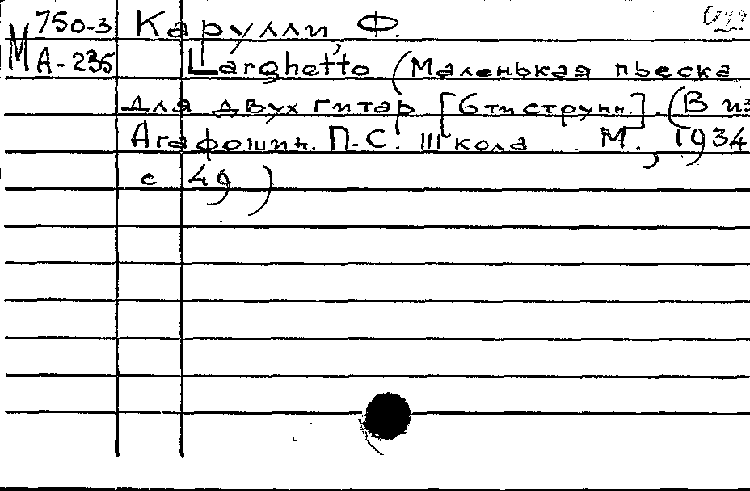 М 750-3 Карулли, Ф.
А-235 Larghetto (Маленькая пьеска
для двух гитар [6тиструнн.]. (В из
Агафошин. П.С. Школа М., 1934
с 49)